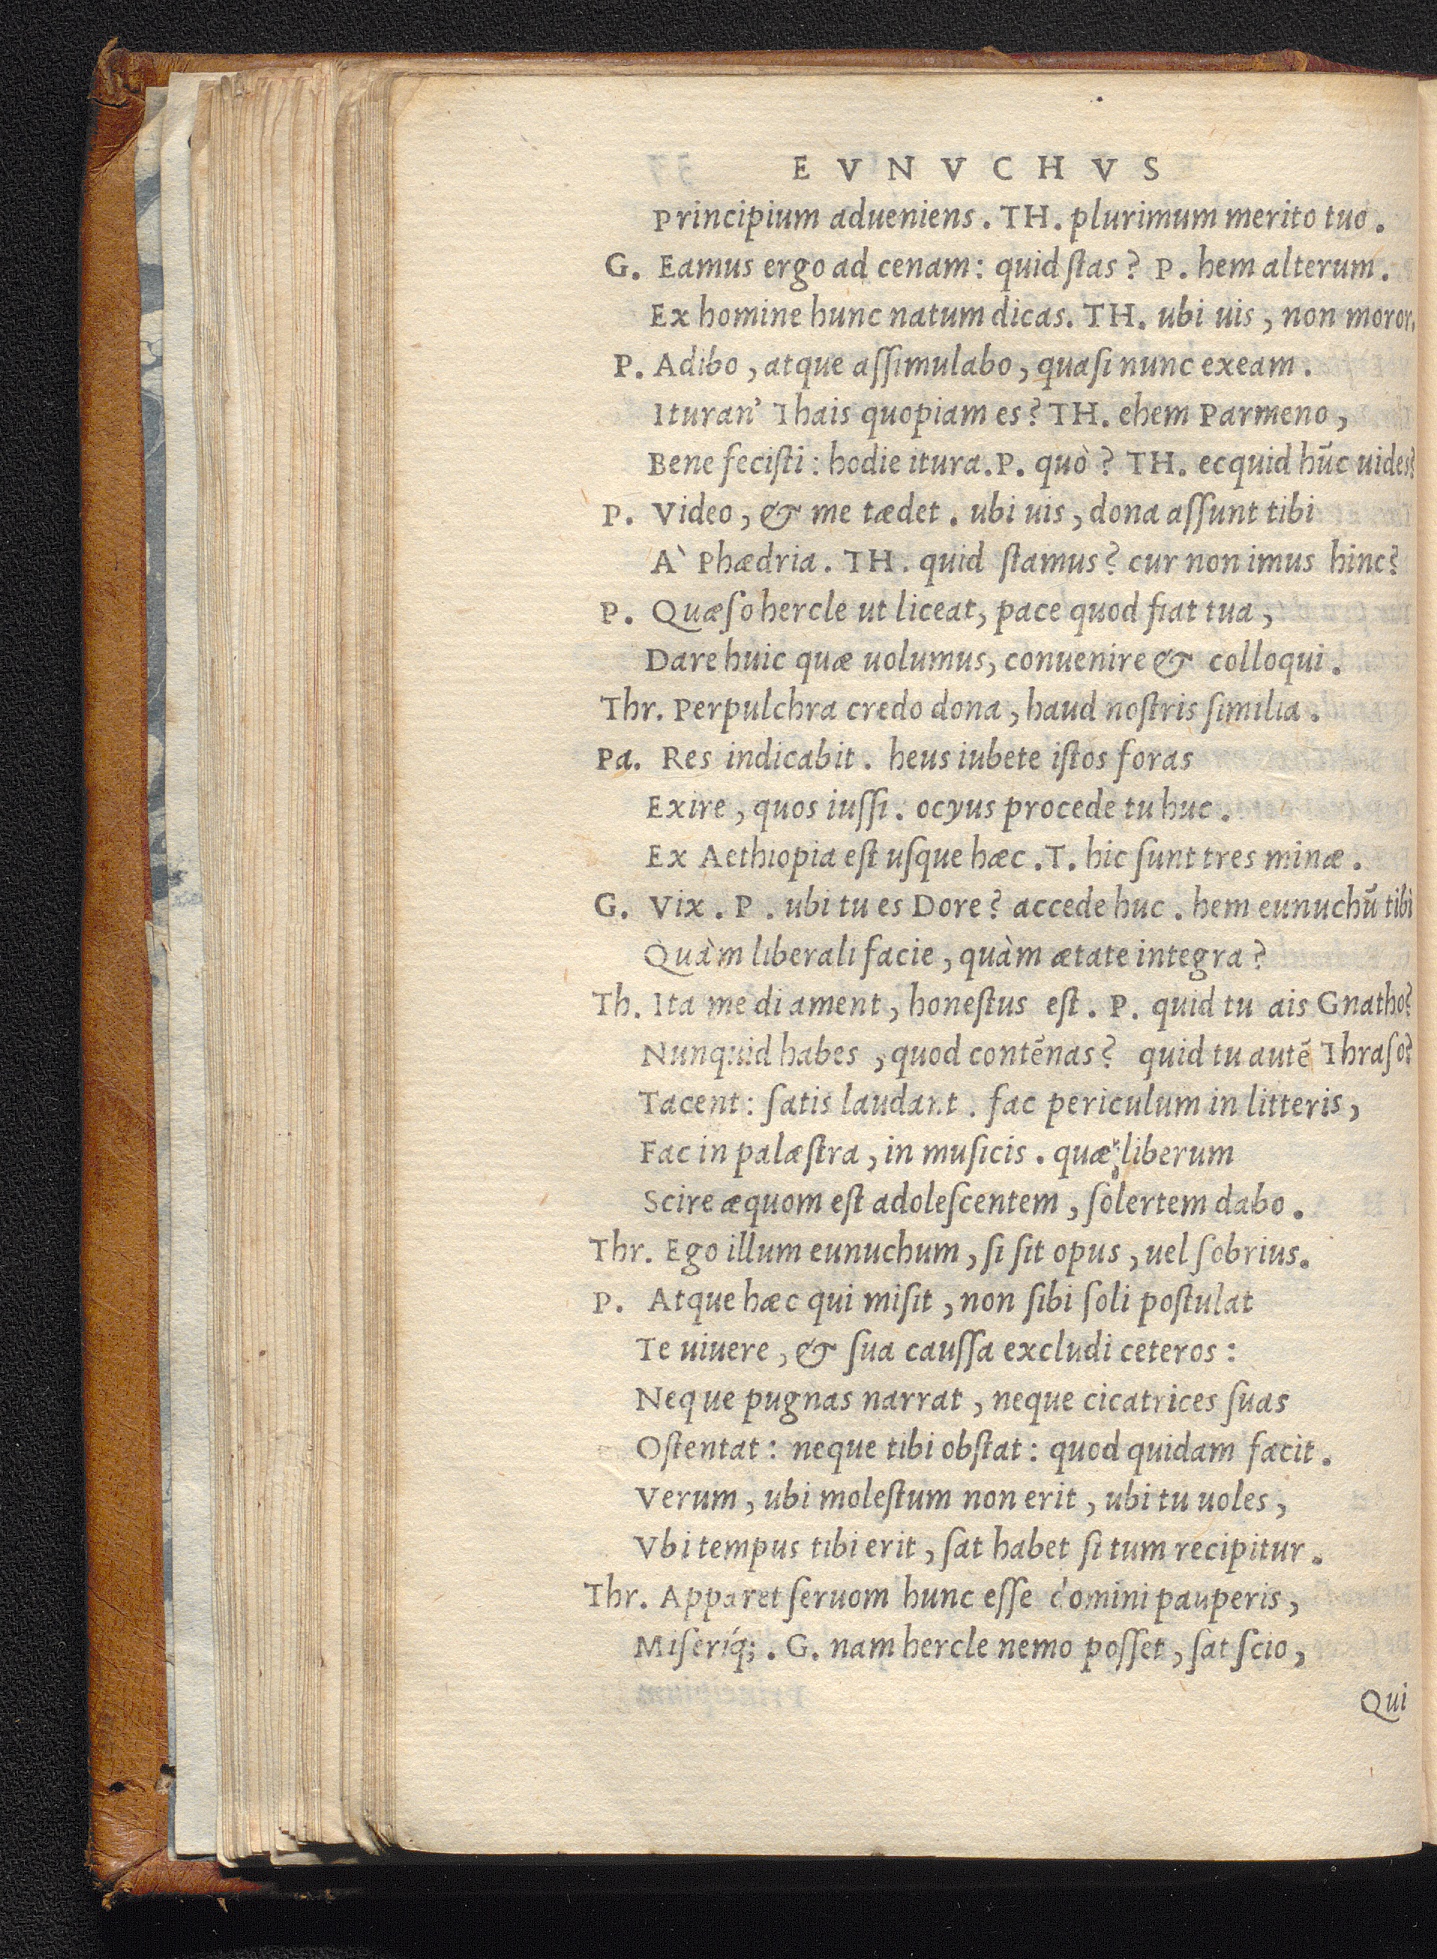 EVNVCHVS
Principium adueniens. TH. plurimum merito tuo.
G. Eamus ergo ad cenam: quid ſtas? P. hem alterum.
Ex homine hunc natum dicas. TH. ubi uis, non moror.
P. Adibo, atque aſſimulabo, quaſi nunc exeam.
Ituran' Thais quopiam es? TH. ehem Parmeno,
Bene feciſti: hodie itura. P. quò? TH. ecquid hūc uides?
P. Video, & me tædet. ubi uis, dona aſſunt tibi
A` Phædria. TH. quid ſtamus? cur non imus hinc?
P. Quæſo hercle ut liceat, pace quod fiat tua,
Dare huic quæ uolumus, conuenire & colloqui.
Thr. Perpulchra credo dona, haud noſtris ſimilia.
Pa. Res indicabit. heus iubete iſtos foras
Exire, quos iuſſi. ocyus procede tu huc.
Ex Aethiopia eſt uſque hæc. T. hic ſunt tres minæ.
G. Vix. P. ubi tu es Dore? accede huc. hem eunuchū tibi
Quàm liberali facie, quàm ætate integra?
Th. Ita me di ament, honeſtus eſt. P. quid tu ais Gnatho?
Nunquid habes, quod contēnas? quid tu autē Thraſo?
Tacent: ſatis laudant. fac periculum in litteris,
Fac in palæſtra, in muſicis. quæ liberum
Scire æquom eſt adoleſcentem, ſolertem dabo.
Thr. Ego illum eunuchum, ſi ſit opus, uel ſobrius.
P. Atque hæc qui miſit, non ſibi ſoli poſtulat
Te uiuere, & ſua cauſſa excludi ceteros:
Neque pugnas narrat, neque cicatrices ſuas
Oſtentat: neque tibi obſtat: quod quidam facit.
Verum, ubi moleſtum non erit, ubi tu uoles,
Vbi tempus tibi erit, ſat habet ſi tum recipitur.
Thr. Apparet ſeruom hunc eſſe domini pauperis,
Miſeriq́;. G. nam hercle nemo poſſet, ſat ſcio,
Qui